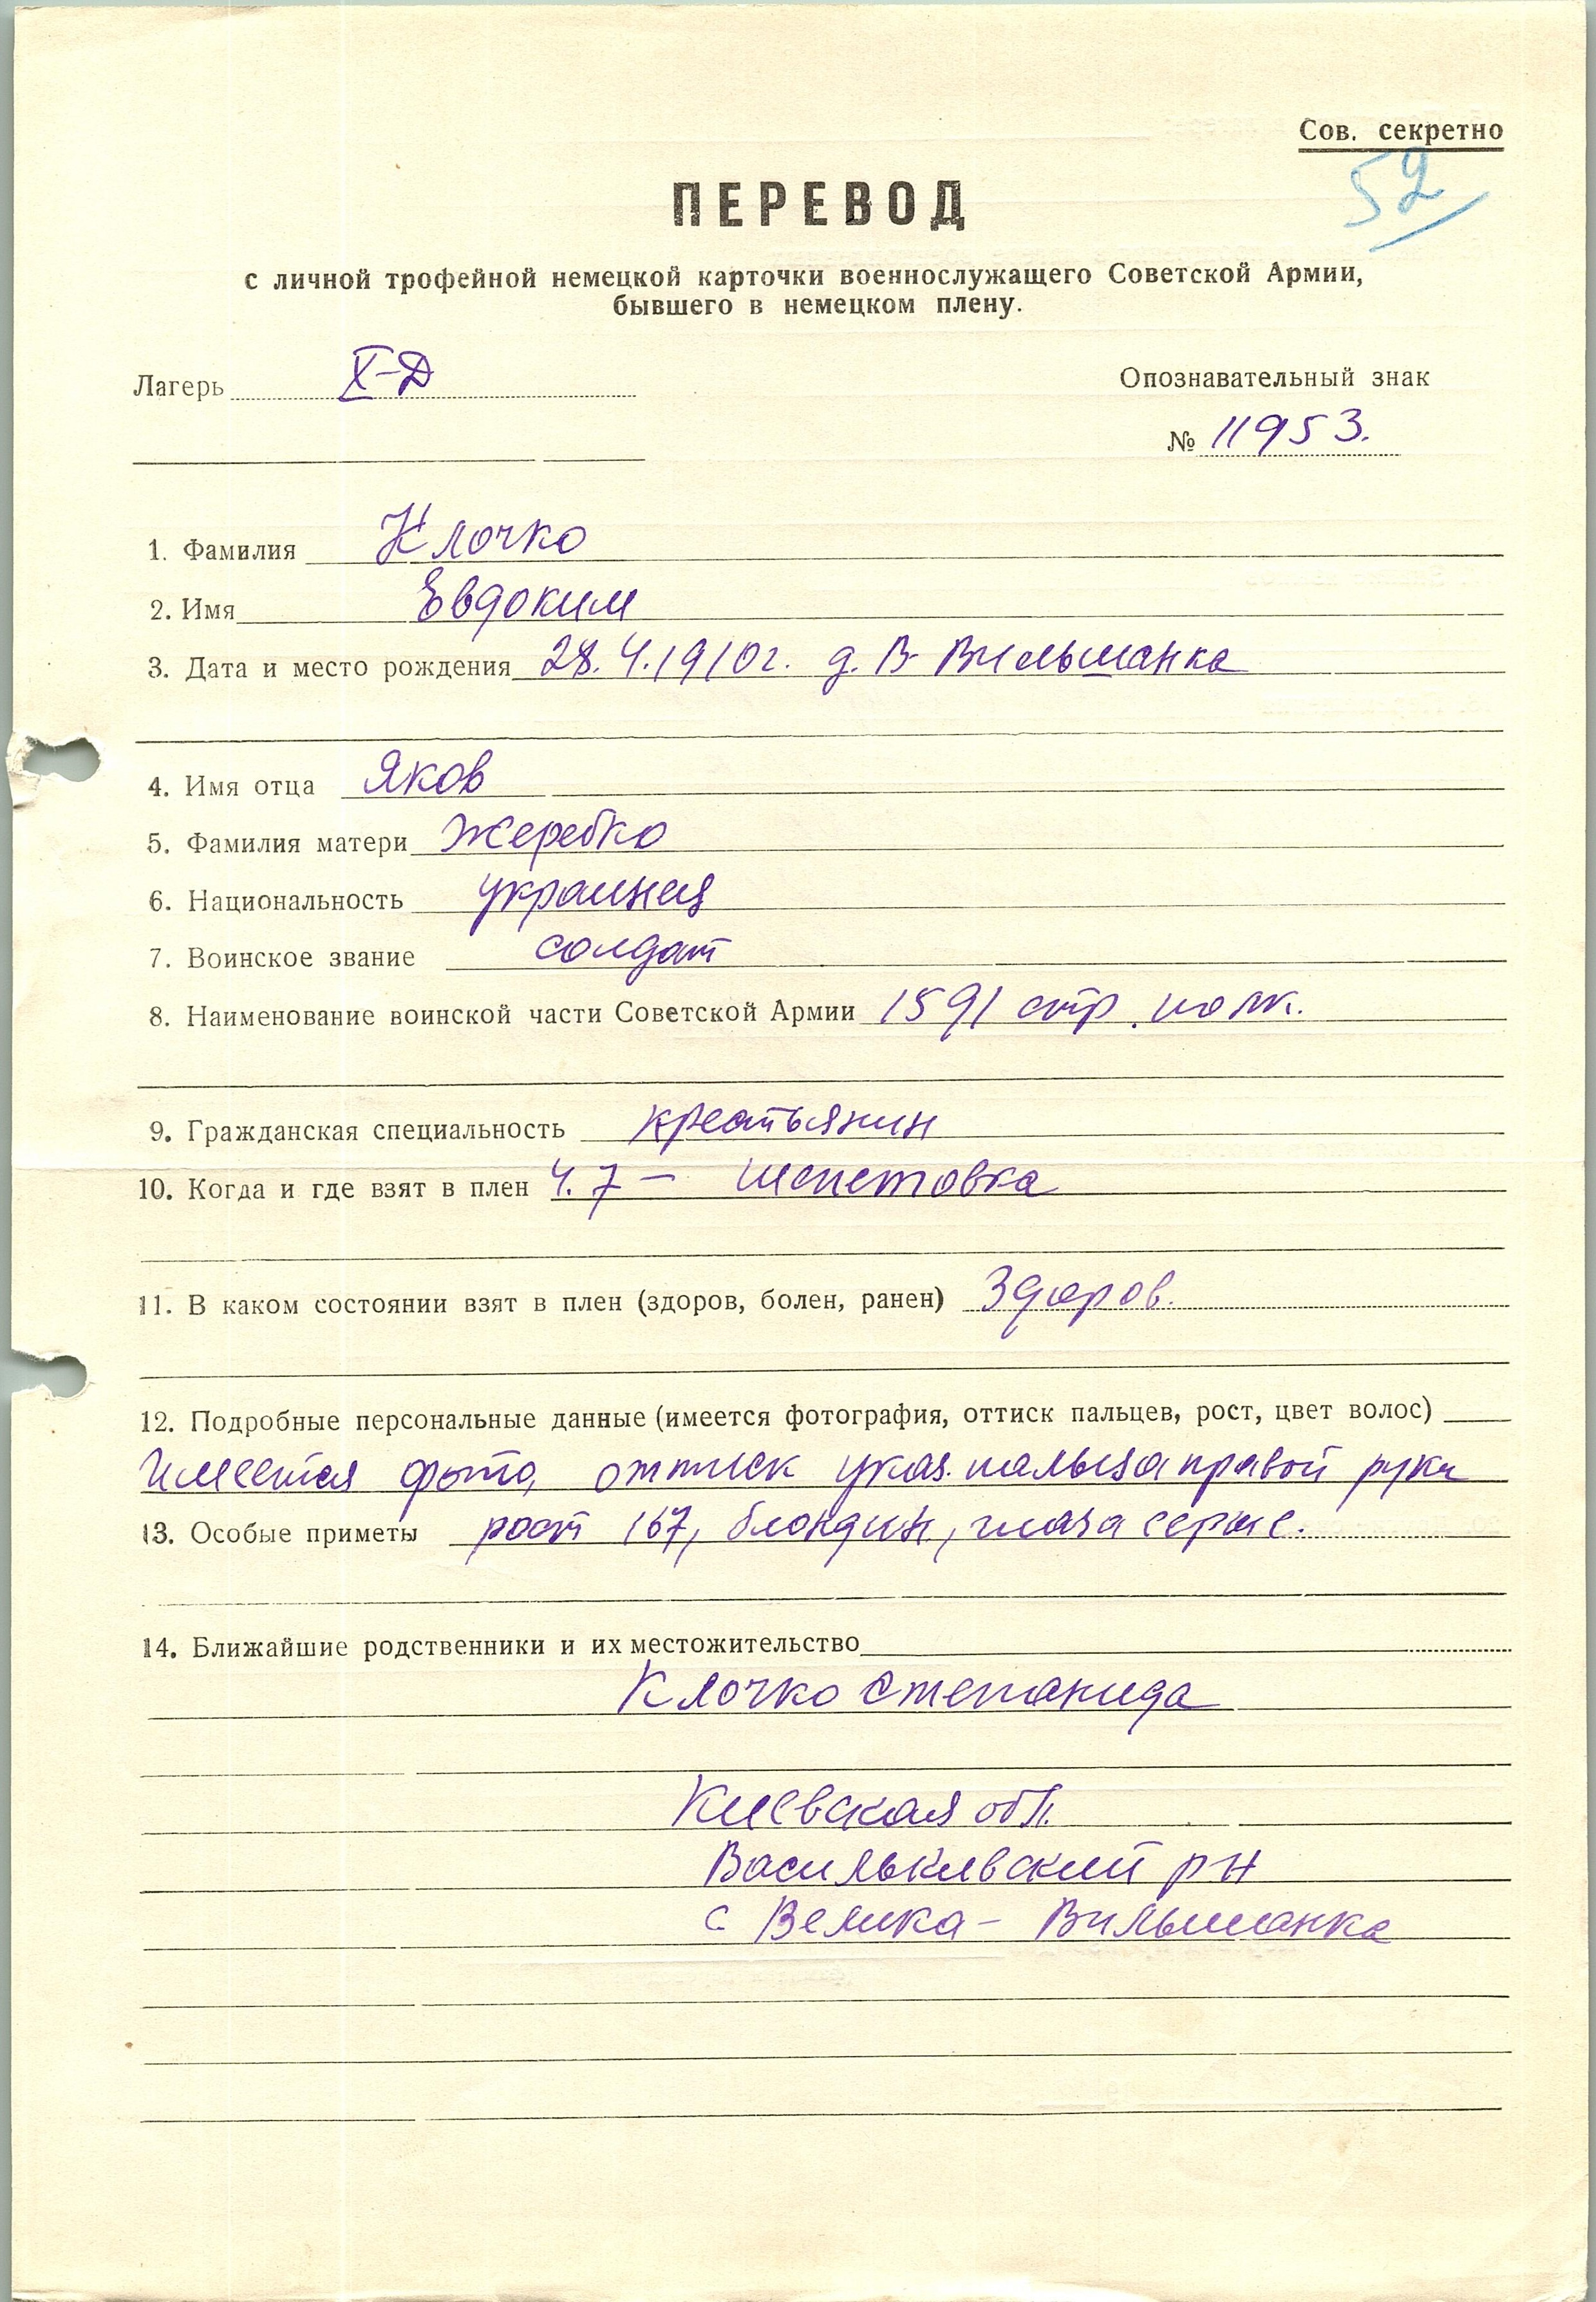 Сов. секретно
52
ПЕРЕВОД
с личной трофейной немецкой карточки военнослужащего Советской Армии,
бывшего в немецком плену.
Лагерь X-Д
Опознавательный знак
№ 11953.
1. Фамилия Клочко
2. Имя Евдоким
3. Дата и место рождения 28.4.1910г. д. В-Вильшанка
4. Имя отца Яков
5. Фамилия матери Жеребко
6. Национальность украинец
7. Воинское звание солдат
8. Наименование воинской части Советской Армии 1591 стр. полк.
9. Гражданская специальность крестьянин
10. Когда и где взят в плен 4.7 — Шепетовка
11. В каком состоянии взят в плен (здоров, болен, ранен) Здоров.
12. Подробные персональные данные (имеется фотография, оттиск пальцев, рост, цвет волос)
Имеется фото, оттиск указ. пальца правой руки
13. Особые приметы рост 167, блондин, глаза серые.
14. Ближайшие родственники и их местожительство
Клочко Степанида
Киевская обл.
Васильківский р-н
с Велика - Вильшанка